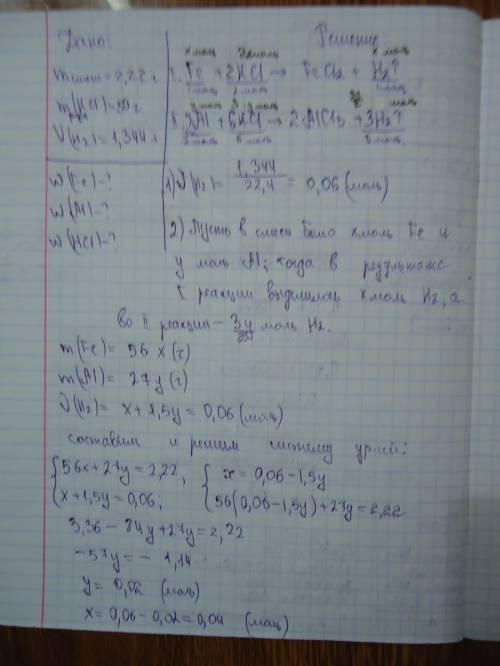 Дано:
m смеси = 2,22 г
m (HCl) =
V(H₂) = 1,344 л
ω (Fe) - ?
ω (Al) - ?
ω (HCl) - ?
Решение:
x моль 2x моль x моль
I. Fe + 2HCl → FeCl₂ + H₂↑
1 моль 2 моль 1 моль
y моль 3y моль
II. 2Al + 6HCl → 2AlCl₃ + 3H₂↑
2 моль 6 моль 3 моль
1) ν(H₂) = 1,344 / 22,4 = 0,06 (моль)
2) Пусть в смеси было x моль Fe и
y моль Al; тогда в результате
I реакции выделилось x моль H₂, а
во II реакции - 3y/2 моль H₂.
m(Fe) = 56 x (г)
m(Al) = 27 y (г)
ν(H₂) = x + 1,5y = 0,06 (моль)
составим и решим систему ур-ий:
{ 56x + 27y = 2,22, { x = 0,06 - 1,5y
{ x + 1,5y = 0,06; { 56(0,06 - 1,5y) + 27y = 2,22
3,36 - 84y + 27y = 2,22
-57y = - 1,14
y = 0,02 (моль)
x = 0,06 - 0,02 = 0,04 (моль)